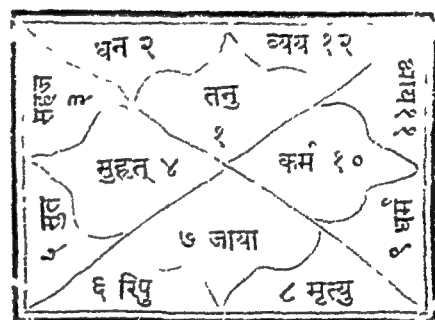 धन २
व्यय १२
सहज
३
तनु
१
आय ११
सुहृत् ४
कर्म १०
५ सुत
धर्म ९
७ जाया
६ रिपु
८ मृत्यु